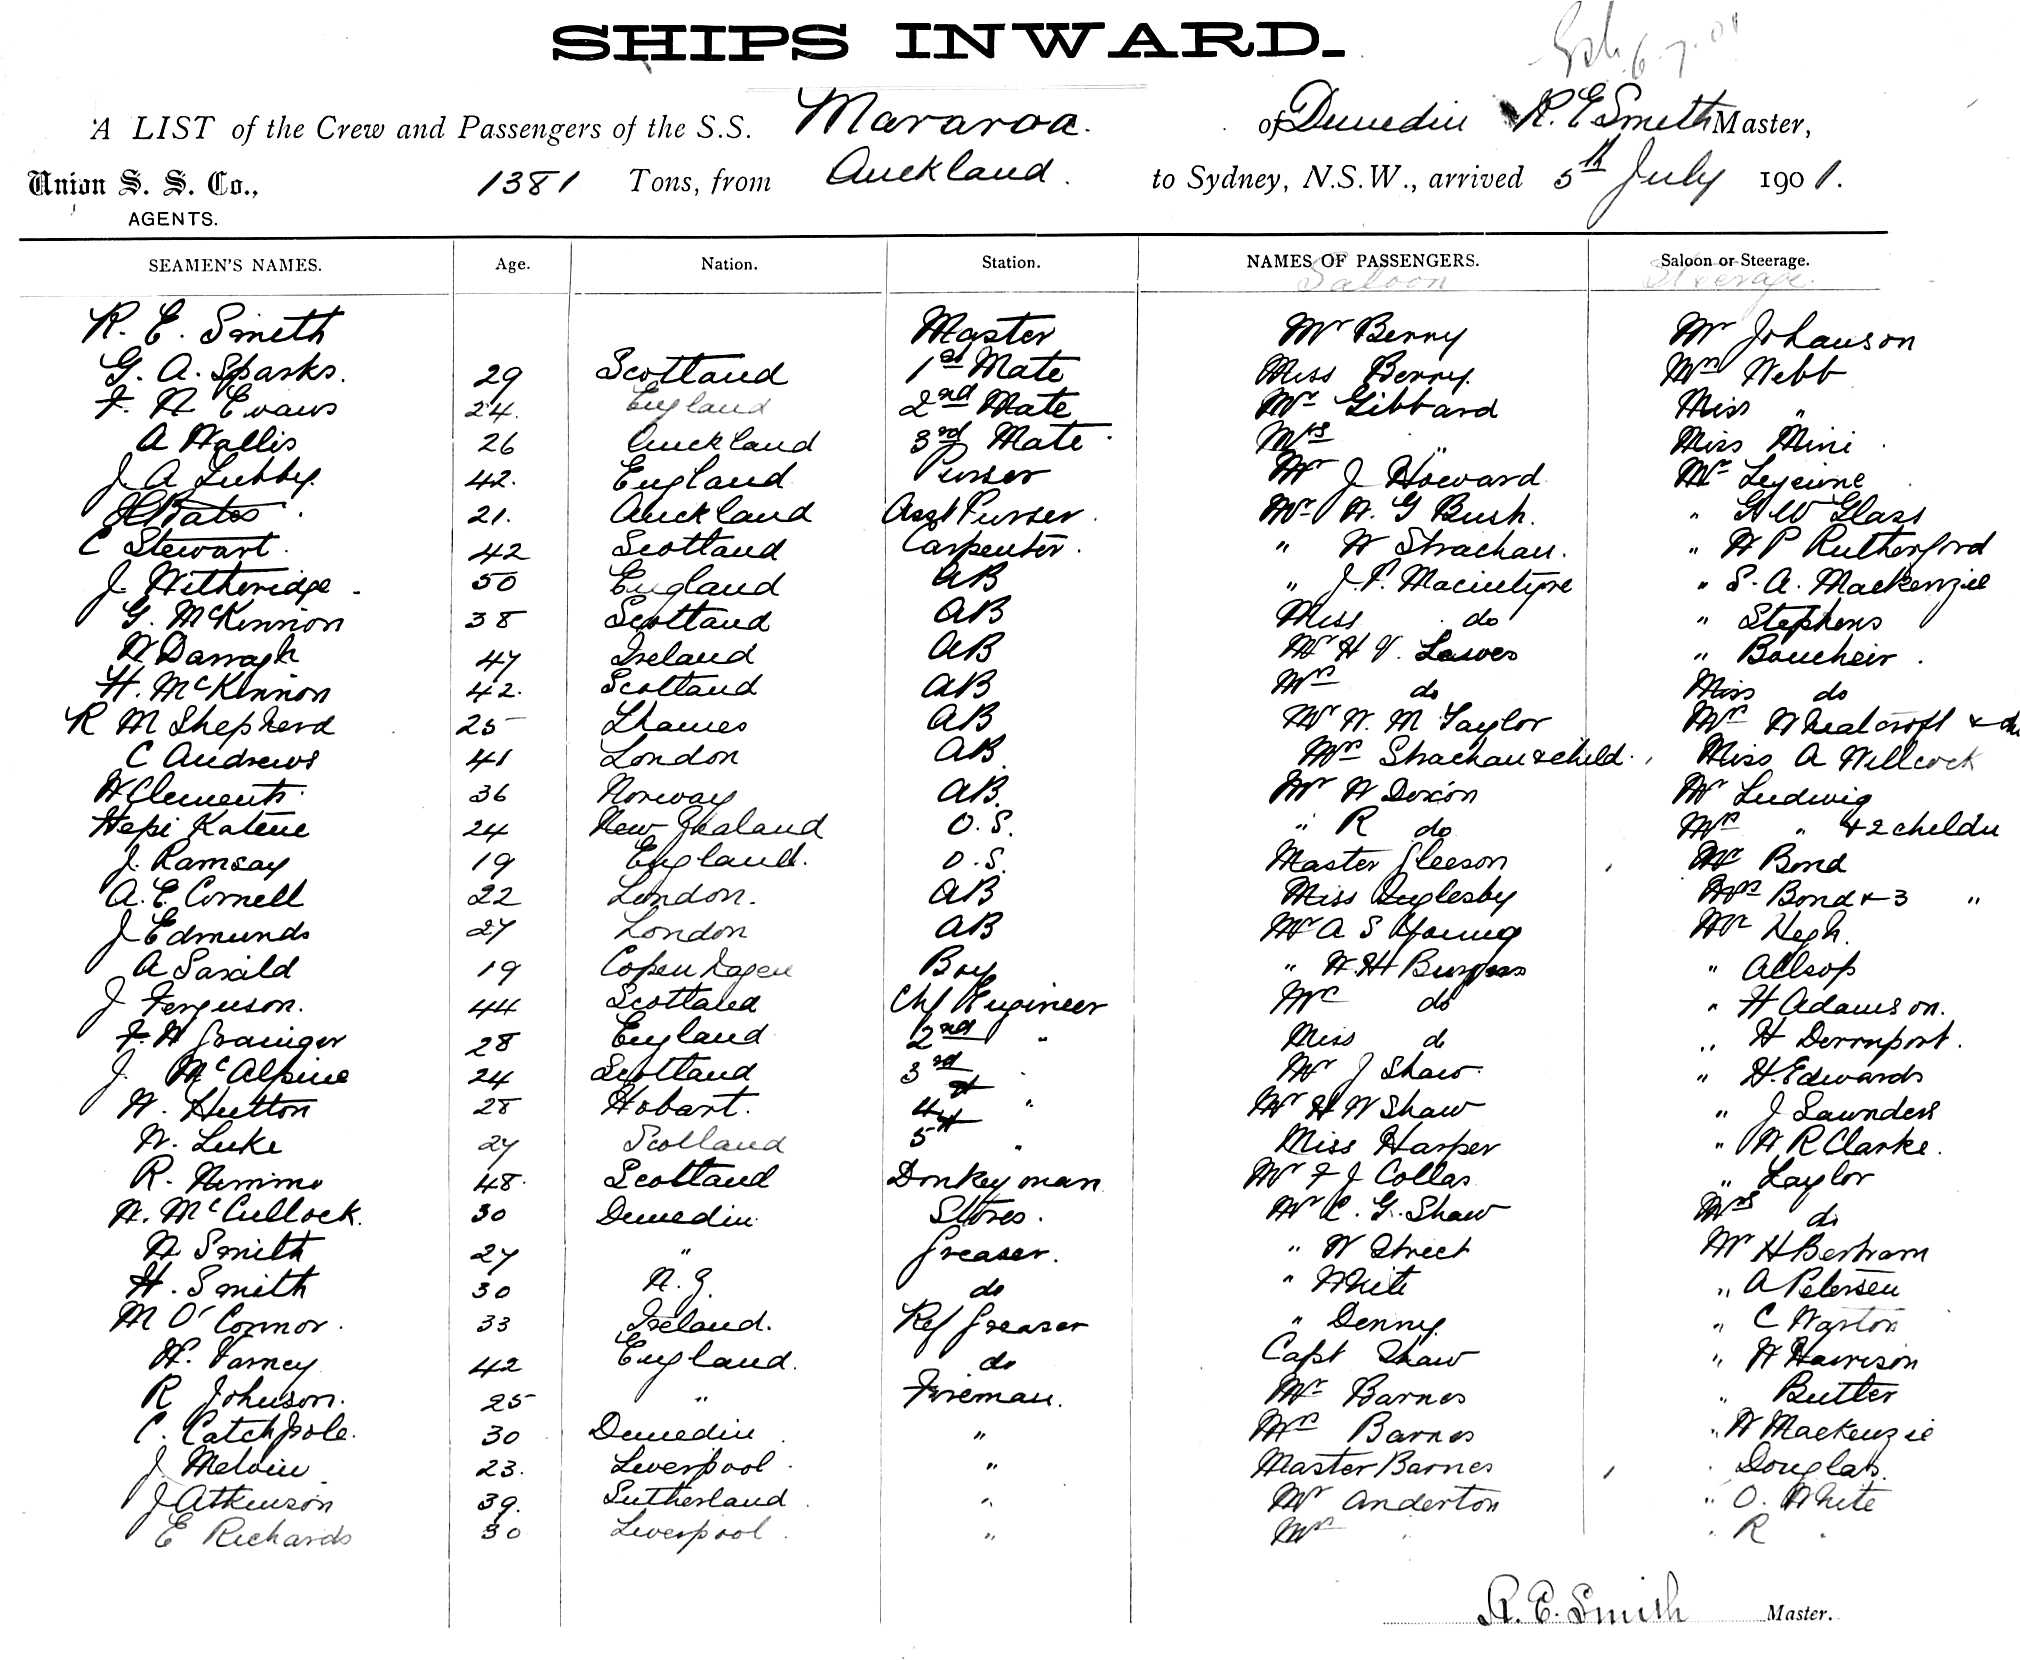 SHIPS INWARD.
6.7.01
A LIST of the Crew and Passengers of the S.S. Mararoa. of Dunedin R. E Smith Master,
Union S. S. Co., 1381 Tons, from Auckland. to Sydney, N.S.W., arrived 5th July 1901.
AGENTS.
SEAMEN'S NAMES. Age. Nation. Station. NAMES OF PASSENGERS. Saloon or Steerage.
Saloon Steerage.
R. E. Smith Master Mr Berry Mr Johanson
G. A. Sparks. 29 Scotland 1st Mate Miss Berry. Mrs Webb
F. N Evans 24. England 2nd Mate Mr Gibbard Miss "
A Wallis 26 Auckland 3rd Mate Mrs " Miss Mini
J A Lubby. 42. England Purser Mr J Howard Mr
Bates 21. Auckland Asst Purser. Mr W. G Bush. " G W Glass
C Stewart. 42 Scotland Carpenter. " W Strachan. " W P Rutherford
J. Witheridge. 50 England AB " J. P. Macintyre " S. A. Mackenzie
G. McKinnon 38 Scotland AB Miss do " Stephens
W Darragh 47 Ireland AB Mr H V. Lawes " Boucheir.
H. McKinnon 42. Scotland AB Mrs do Miss do
R M Shepherd 25 Thames AB Mr W. M Taylor Mrs Wheatcroft &
C Andrews 41 London AB. Mrs Strachan & child. Miss A Willcock
W Clements 36 Norway AB. Mr W Doxon Mr Ludwig
Hepi Katene 24 New Zealand O.S. " R do Mrs " & 2 childn
J. Ramsay 19 England. O.S. Master Gleeson Mr Bond
A. E Cornell 22 London. AB Miss Inglesby Mrs Bond & 3 "
J Edmunds 27 London AB Mr A S Young Mr Hegh.
A Saxild 19 Copenhagen Boy " W. H Burgess " Allsop
J Ferguson. 44 Scotland Chf Engineer Mrs do " H Adamson.
F. W Grainger 28 England 2nd " Miss do " H Devenport.
J. McAlpine 24 Scotland 3rd " Mr J Shaw. " H. Edwards
W. Hutton 28 Hobart. 4th " Mr H W Shaw " J Saunders
W. Luke 27 Scotland 5th " Miss Harper " W R Clarke.
R. Nimmo 48. Scotland Donkeyman Mr F J Collas " Taylor
N. McCullock. 30 Dunedin Stores. Mr C. G. Shaw Mrs do
W Smith 27 " Greaser. " W Street Mr H Bertram
H. Smith 30 N.Z. do " White " A Petersen
M O'Connor. 33 Ireland. Ref Greaser " Denny. " C Warton
W. Varney 42 England. do Capt Shaw " W Harrison
R Johnson. 25 " Fireman. Mr Barnes " Butler
C. Catchpole. 30 Dunedin " Mrs Barnes " W Mackenzie
J Melvin 23. Liverpool. " Master Barnes Douglas.
J Atkinson 39. Sutherland " Mr Anderton " O. White
E Richards 30 Liverpool " Mrs " " R "
R. E. Smith Master.